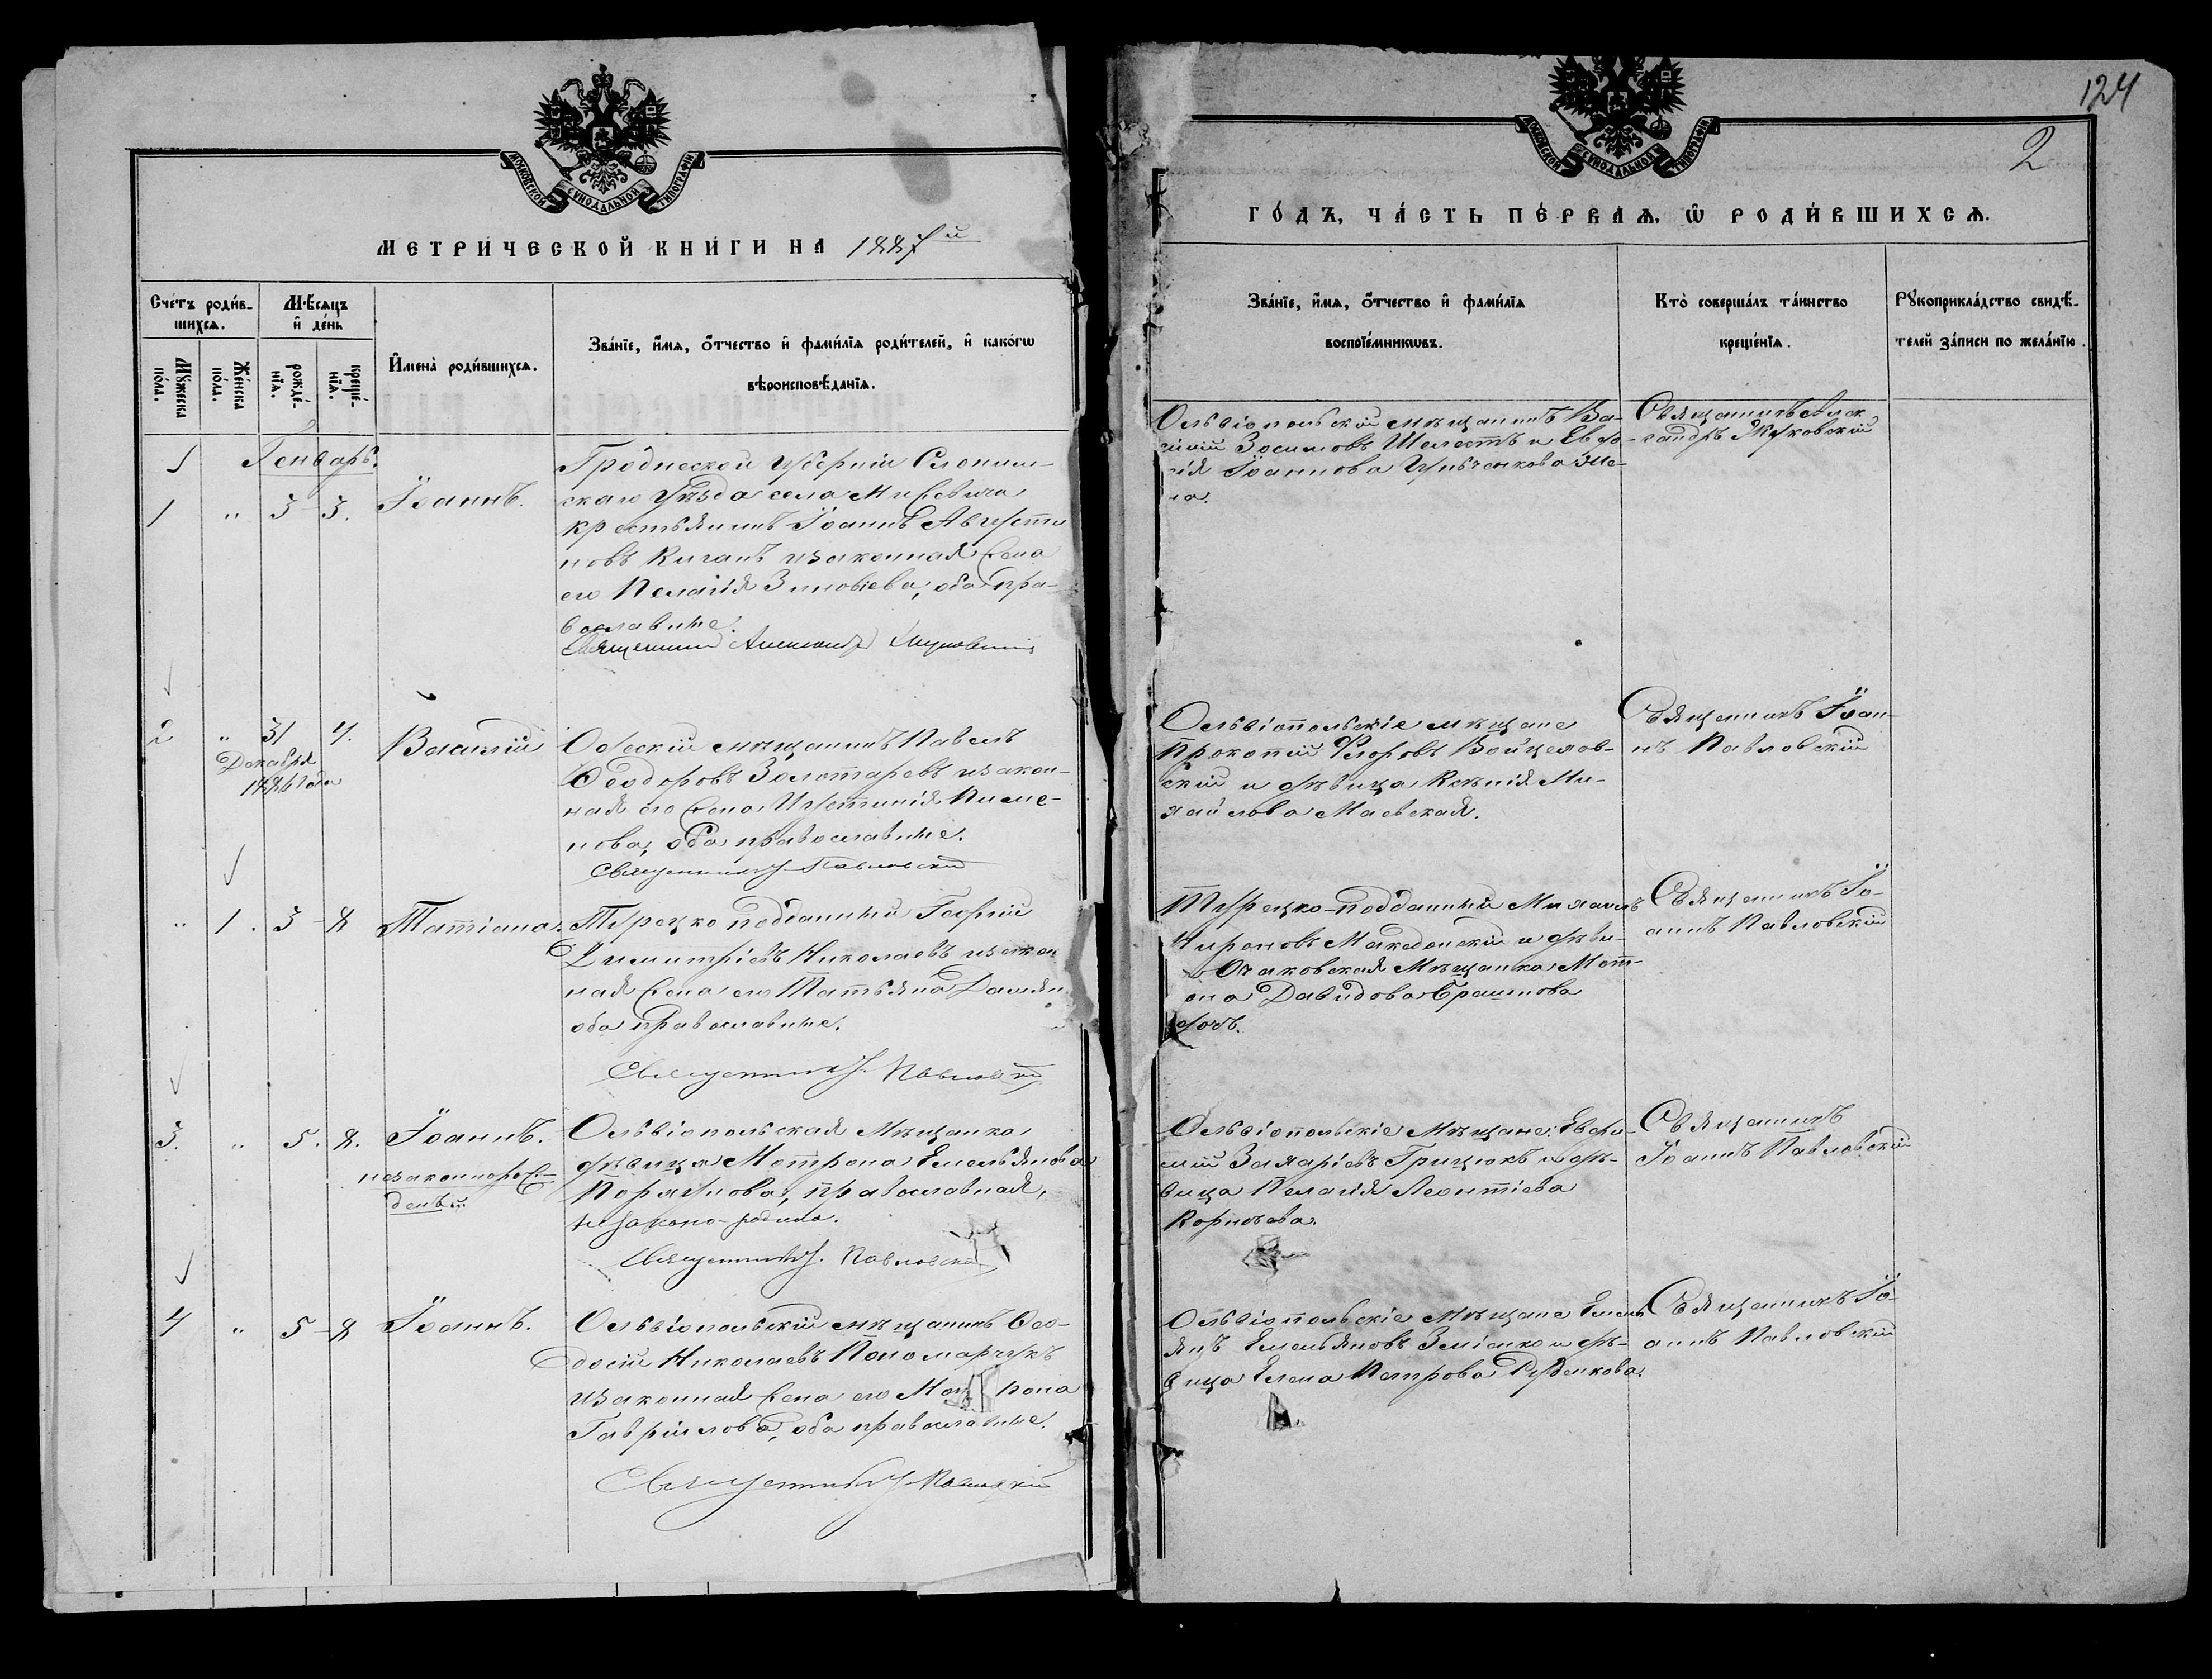 МОСКОВСКОЙ СѴНОДАЛЬНОЙ ТИПОГРАФІИ
МЕТРИ́ЧЕСКОЙ КНИ́ГИ НА 1887й
Сче́тъ роди́в-
шихсѧ.
Мѣ́сѧцъ
и҆ де́нь
Мꙋ́жеска по́ла.
Же́нска по́ла.
рожде́-
нїѧ.
креще́-
нїѧ.
И҆мена̀ роди́вшихсѧ.
Зва́нїе, и҆́мѧ, ѻ҆́тчество и҆ фами́лїѧ роди́телей, и҆ како́гѡ
вѣроисповѣ́данїѧ.
Генварь.
1 " 3 3. Іоаннъ.
Гродненской губерніи Слоним-
скаго уѣзда села
крестьянинъ Іоаннъ Августи
новъ и законная жена
его Пелагія Зиновіева, оба пра-
вославные.
Священникъ Александръ Жуковскій
2 " 31 4. Василій
Декабря
1886 года
Одесскій мѣщанинъ Павелъ
Ѳеодоровъ Золотаревъ и закон-
ная его жена Іустинія Пиме-
нова, оба православные.
Священникъ І. Павловскій
" 1. 3 8 Татіана.
Турецко подданный Георгій
Димитріевъ Николаевъ и закон
ная жена его Татьяна
оба православные.
Священникъ І. Павловскій
3. " 5. 8. Іоаннъ.
незаконорож-
денъ
Ольвіопольская Мѣщанка
дѣвица Матрона Емельянова
православная,
незаконо-родила.
Священникъ І. Павловскій
4 " 5 8 Іоаннъ.
Ольвіопольскій мѣщанинъ Ѳео-
досій Николаевъ Пономарчукъ
и законная жена его Матрона
Гавріилова, оба православные.
Священникъ І. Павловскій
124
2
МОСКОВСКОЙ СѴНОДАЛЬНОЙ ТИПОГРАФІИ
ГО́ДЪ, ЧА́СТЬ ПЕ́РВАѦ, Ѡ҆ РОДИ́ВШИХСѦ.
Зва́нїе, и҆́мѧ, ѻ҆́тчество и҆ фами́лїѧ
воспрїе́мникѡвъ.
Кто̀ соверша́лъ та́инство
креще́нїѧ.
Рꙋкоприкла́дство свидѣ́-
телей за́писи по жела́нїю.
Ольвіопольскій мѣщанинъ Ва-
силій Зосимовъ Шелестъ и Евфро-
сія Іоаннова же-
на.
Священникъ Алек
сандръ Жуковскій
Ольвіопольскіе мѣщане
Прокопій Ѳедоровъ Войцехов-
скій и дѣвица Ксенія Ми-
хайлова Маевская.
Священникъ Іоан-
нъ Павловскій
Турецко-подданный Михаилъ
Мироновъ Македонскій и дѣви-
Очаковская Мѣщанка Мат-
она Давидова
дочь.
Священникъ Іо-
аннъ Павловскій
Ольвіопольскіе Мѣщане: Евфи-
мій Захаріевъ Грицюкъ и дѣ-
вица Пелагія Леонтіева
Корнѣева.
Священникъ
Іоаннъ Павловскій
Ольвіопольскіе Мѣщане Емель
янъ Емельяновъ Зміенко и дѣ-
вица Елена Петрова Руденкова.
Священникъ Іо-
аннъ Павловскій